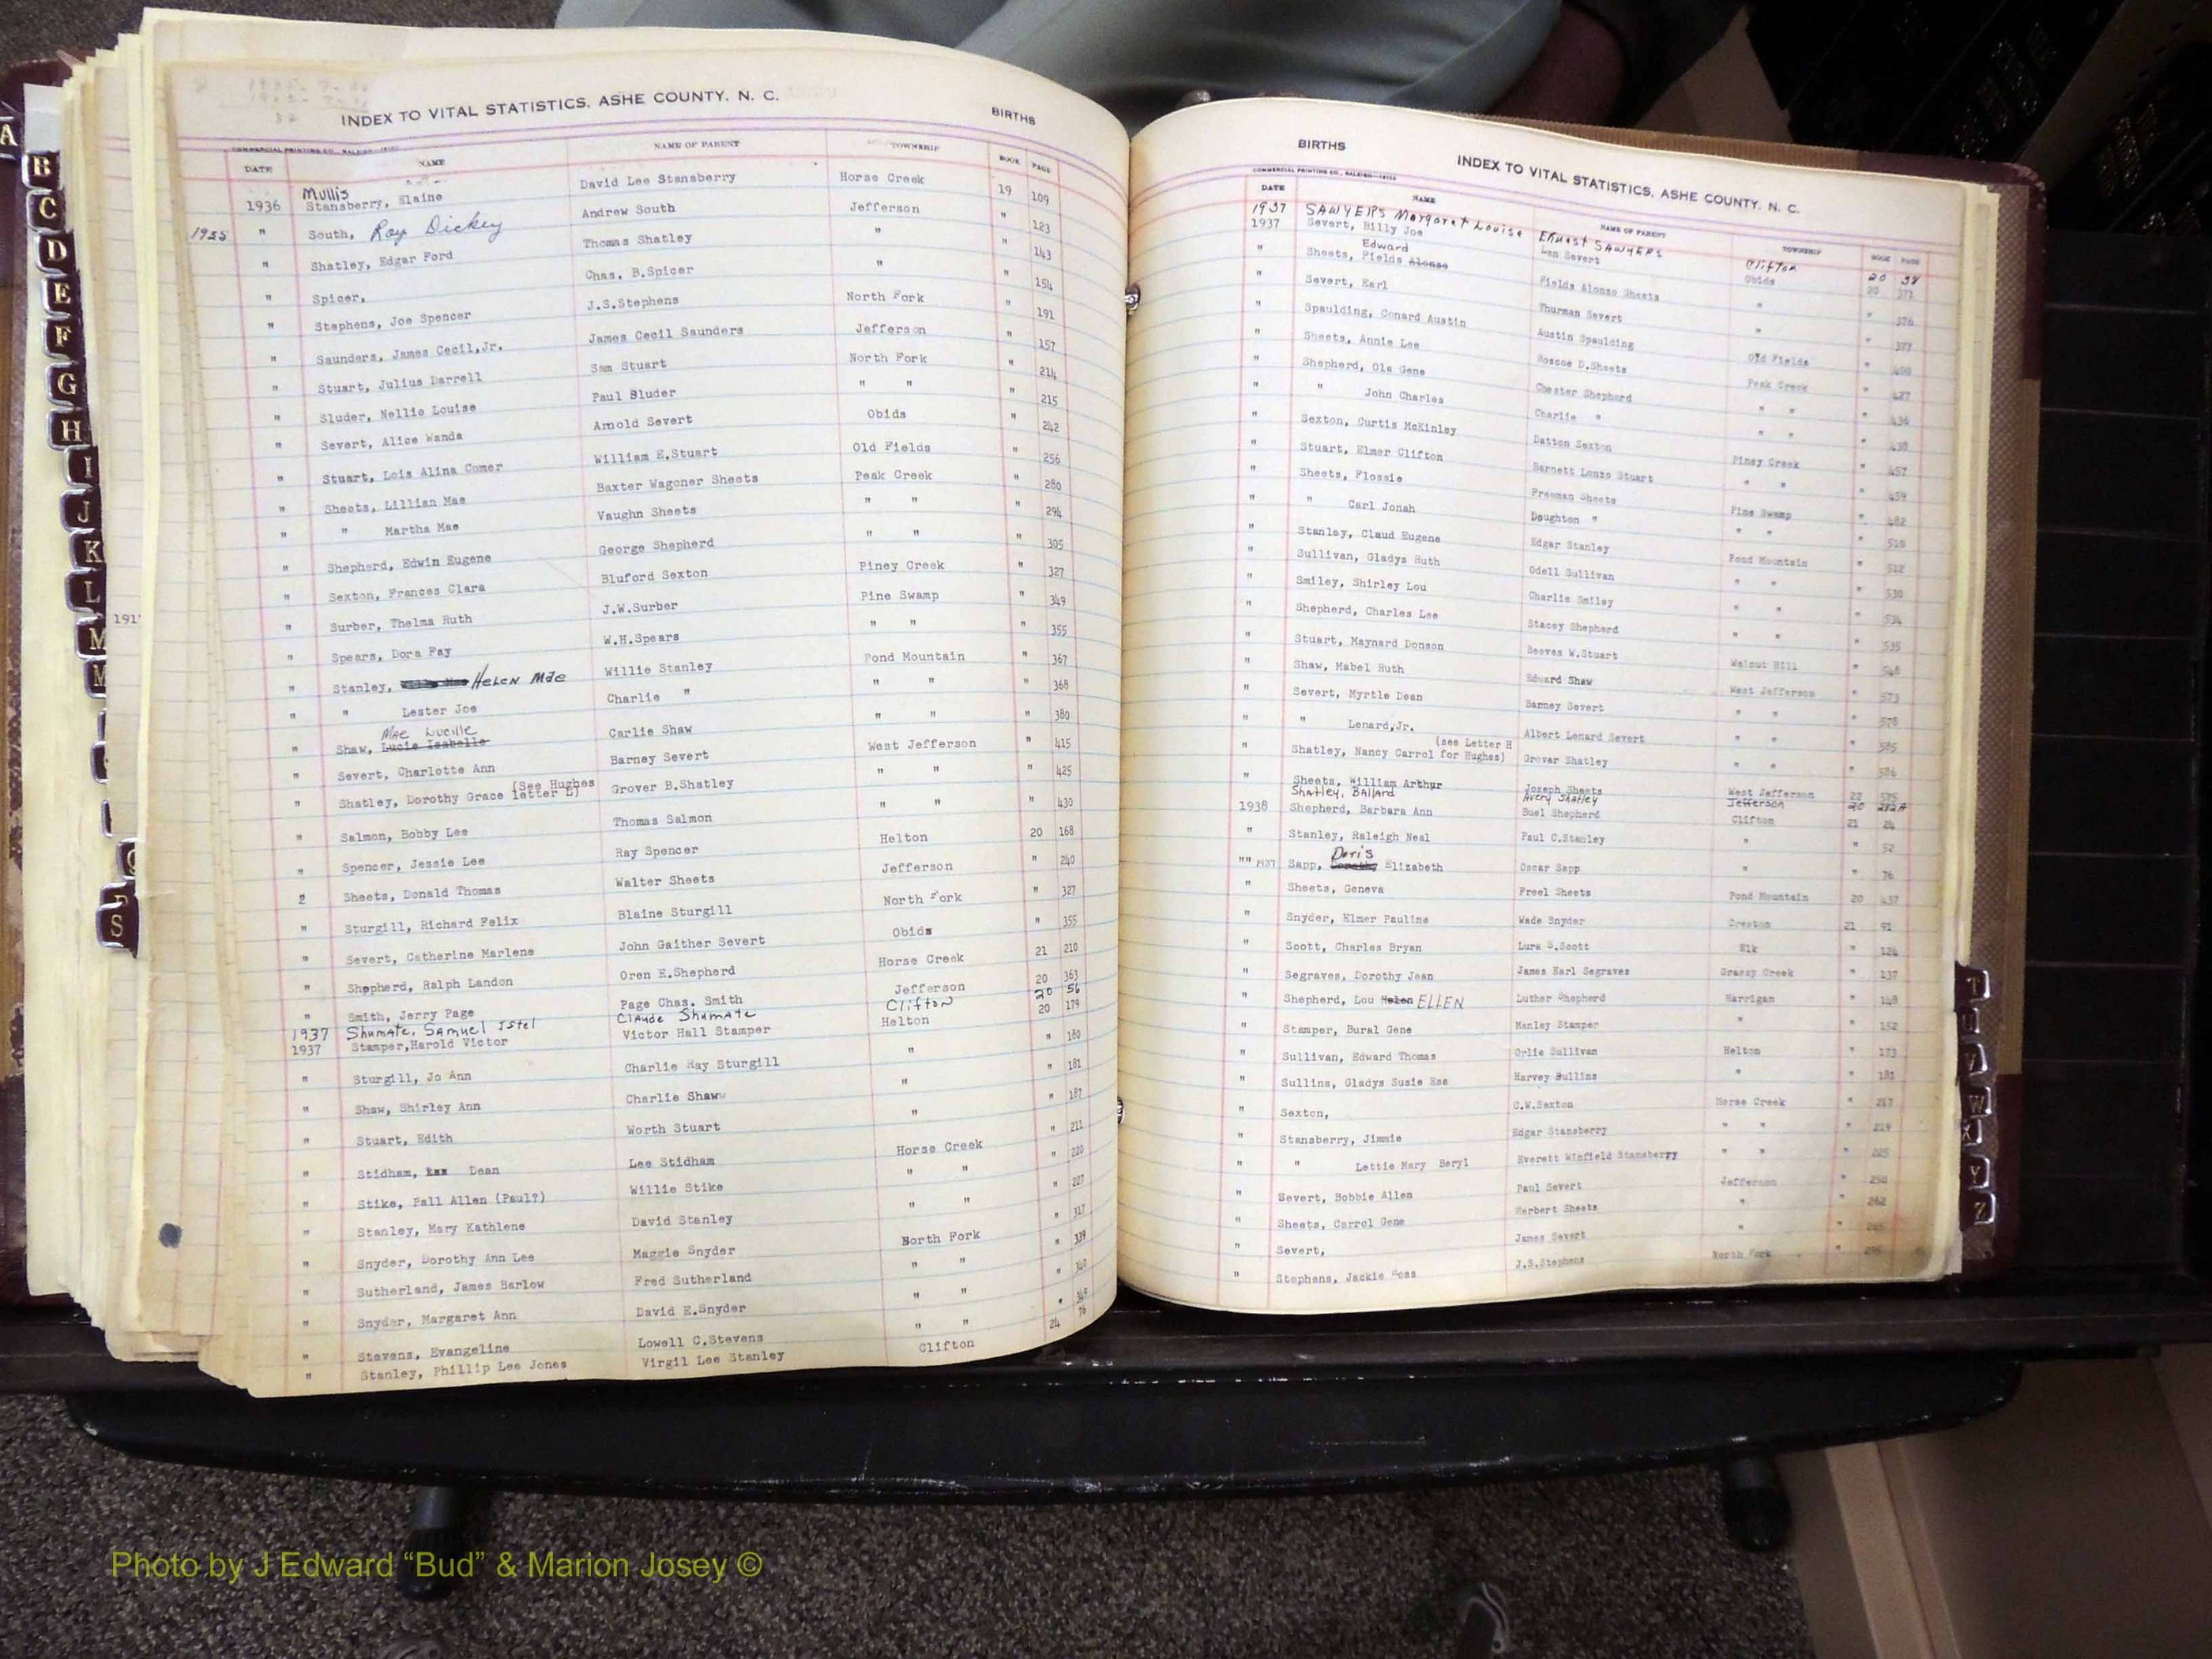 INDEX TO VITAL STATISTICS, ASHE COUNTY, N. C.
BIRTHS
COMMERCIAL PRINTING CO., RALEIGH
DATE NAME NAME OF PARENT TOWNSHIP BOOK PAGE
Mullis
1936 Stansberry, Elaine David Lee Stansberry Horse Creek 19 109
1935 " South, Roy Dickey Andrew South Jefferson " 123
" Shatley, Edgar Ford Thomas Shatley " 143
" Spicer, Chas. B.Spicer " 154
" Stephens, Joe Spencer J.S.Stephens North Fork 191
" Saunders, James Cecil,Jr. James Cecil Saunders Jefferson " 157
" Stuart, Julius Darrell Sam Stuart North Fork " 214
" Sluder, Nellie Louise Paul Sluder " " " 215
" Severt, Alice Wanda Arnold Severt Obids " 242
" Stuart, Lois Alina Comer William E.Stuart Old Fields " 256
" Sheets, Lillian Mae Baxter Wagoner Sheets Peak Creek " 280
" " Martha Mae Vaughn Sheets " " " 294
" Shepherd, Edwin Eugene George Shepherd " " " 305
" Sexton, Frances Clara Bluford Sexton Piney Creek " 327
" Surber, Thelma Ruth J.W.Surber Pine Swamp " 349
" Spears, Dora Fay W.H.Spears " " " 355
" Stanley, HELEN MAE Willie Stanley Pond Mountain " 367
" " Lester Joe Charlie " " " " 368
Mae Lucille
" Shaw, Lucie Isabelle Carlie Shaw " " " 380
" Severt, Charlotte Ann Barney Severt West Jefferson " 415
" Shatley, Dorothy Grace (See Hughes letter E) Grover B.Shatley " " " 425
" Salmon, Bobby Lee Thomas Salmon " " " 430
" Spencer, Jessie Lee Ray Spencer Helton 20 168
2 Sheets, Donald Thomas Walter Sheets Jefferson " 240
" Sturgill, Richard Felix Blaine Sturgill North Fork " 327
" Severt, Catherine Marlene John Gaither Severt Obids " 355
" Shepherd, Ralph Landon Oren E.Shepherd Horse Creek 21 210
" Smith, Jerry Page Page Chas. Smith Jefferson 20 363
1937 Shumate, Samuel Istel Claude Shumate Clifton 20 56
1937 Stamper,Harold Victor Victor Hall Stamper Helton 20 179
" Sturgill, Jo Ann Charlie Ray Sturgill " " 180
" Shaw, Shirley Ann Charlie Shaw " " 181
" Stuart, Edith Worth Stuart " " 187
" Stidham, Dean Lee Stidham Horse Creek " 211
" Stike, Pall Allen (Paul?) Willie Stike " " " 220
" Stanley, Mary Kathlene David Stanley " " " 227
" Snyder, Dorothy Ann Lee Maggie Snyder North Fork " 317
" Sutherland, James Barlow Fred Sutherland " " " 339
" Snyder, Margaret Ann David E.Snyder " " " 340
" Stevens, Evangeline Lowell C.Stevens " " " 349
" Stanley, Phillip Lee Jones Virgil Lee Stanley Clifton 24 76
BIRTHS
INDEX TO VITAL STATISTICS, ASHE COUNTY, N. C.
COMMERCIAL PRINTING CO., RALEIGH
DATE NAME NAME OF PARENT TOWNSHIP BOOK PAGE
1937 SAWYERS Margaret Louise Ernest SAWYERS Clifton 20 38
1937 Severt, Billy Joe Len Severt Obids 20 371
Edward
" Sheets, Fields Alonzo Fields Alonzo Sheets " " 376
" Severt, Earl Thurman Severt " " 377
" Spaulding, Conard Austin Austin Spaulding Old Fields " 400
" Sheets, Annie Lee Roscoe D.Sheets Peak Creek " 427
" Shepherd, Ola Gene Chester Shepherd " " " 436
" " John Charles Charlie " " " " 438
" Sexton, Curtis McKinley Datton Sexton Piney Creek " 457
" Stuart, Elmer Clifton Barnett Lonzo Stuart " " " 459
" Sheets, Flossie Freeman Sheets Pine Swamp " 482
" " Carl Jonah Doughton " " " "
" Stanley, Claud Eugene Edgar Stanley Pond Mountain " 512
" Sullivan, Gladys Ruth Odell Sullivan " " " 530
" Smiley, Shirley Lou Charlie Smiley " " " 534
" Shepherd, Charles Lee Stacey Shepherd " " " 535
" Stuart, Maynard Donson Reeves W.Stuart Walnut Hill " 548
" Shaw, Mabel Ruth Eduard Shaw West Jefferson " 573
" Severt, Myrtle Dean Barney Severt " " " 578
" " Lenard,Jr. Albert Lenard Severt " " " 585
" Shatley, Nancy Carrol (see Letter H for Hughes) Grover Shatley " " " 586
" Sheets, William Arthur Joseph Sheets West Jefferson 22 575
Shatley, Ballard Avery Shatley Jefferson 20 282A
1938 Shepherd, Barbara Ann Buel Shepherd Clifton 21 24
" Stanley, Raleigh Neal Paul C.Stanley " " 52
Doris
"" 1937 Sapp, Dorothy Elizabeth Oscar Sapp " " 76
" Sheets, Geneva Freel Sheets Pond Mountain 20 437
" Snyder, Elmer Pauline Wade Snyder Creston 21 91
" Scott, Charles Bryan Lura S.Scott Elk " 124
" Segraves, Dorothy Jean James Earl Segraves Grassy Creek " 137
" Shepherd, Lou Helen ELLEN Luther Shepherd Harrigan " 148
" Stamper, Bural Gene Manley Stamper " " 152
" Sullivan, Edward Thomas Orlie Sullivan Helton " 173
" Sullins, Gladys Susie Esa Harvey Sullins " " 181
" Sexton, C.W.Sexton Horse Creek " 217
" Stansberry, Jimmie Edgar Stansberry " " " 219
" " Lettie Mary Beryl Everett Winfield Stansberry " " " 225
" Severt, Bobbie Allen Paul Severt Jefferson " 250
" Sheets, Carrol Gene Herbert Sheets " " 262
" Severt, James Severt " " 265
" Stephens, Jackie Ross J.S.Stephens North Fork " 295
A
B
C
D
E
F
G
H
I
J
K
L
M
S
191
W
Y
Z
Photo by J Edward “Bud” & Marion Josey ©